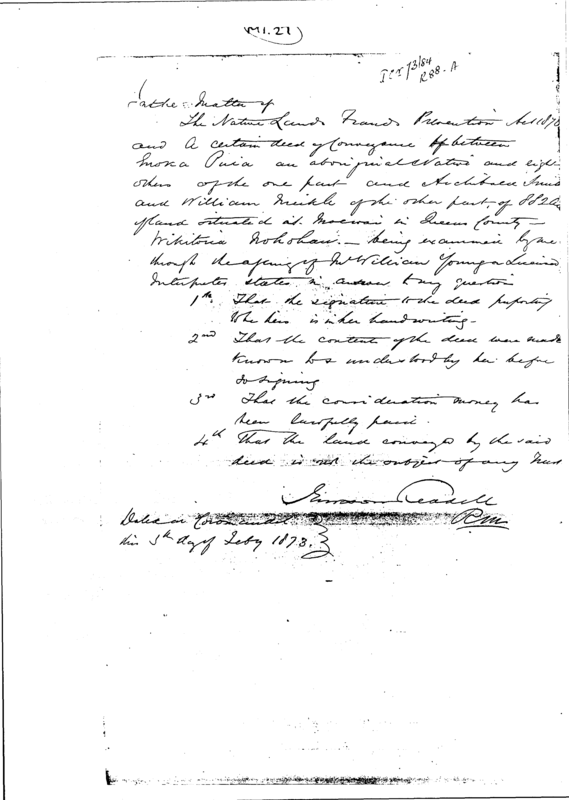 M1.27
ICT 73/84
R88-A
In the Matter of
The Native Lands Frauds Prevention Act 1870
and A certain deed of Conveyance between
Moka Puia an aboriginal Native and eight
others of the one part and Archibald
and William Meikle of the other part, of 882
of land situated at in Queens County -
Wikitoria - being examined by me
through the agency of Mr William Young a Licensed
Interpreter states in answer to my question
1st That the signature to the deed purporting
to be hers is in her handwriting -
2nd That the contents of the deed were made
known to & understood by her before
so signing
3rd That the consideration money has
been lawfully paid.
4th That the land conveyed by the said
deed is not the subject of any trust
RM
Dated at Coromandel
this 5th day of Feby 1873.